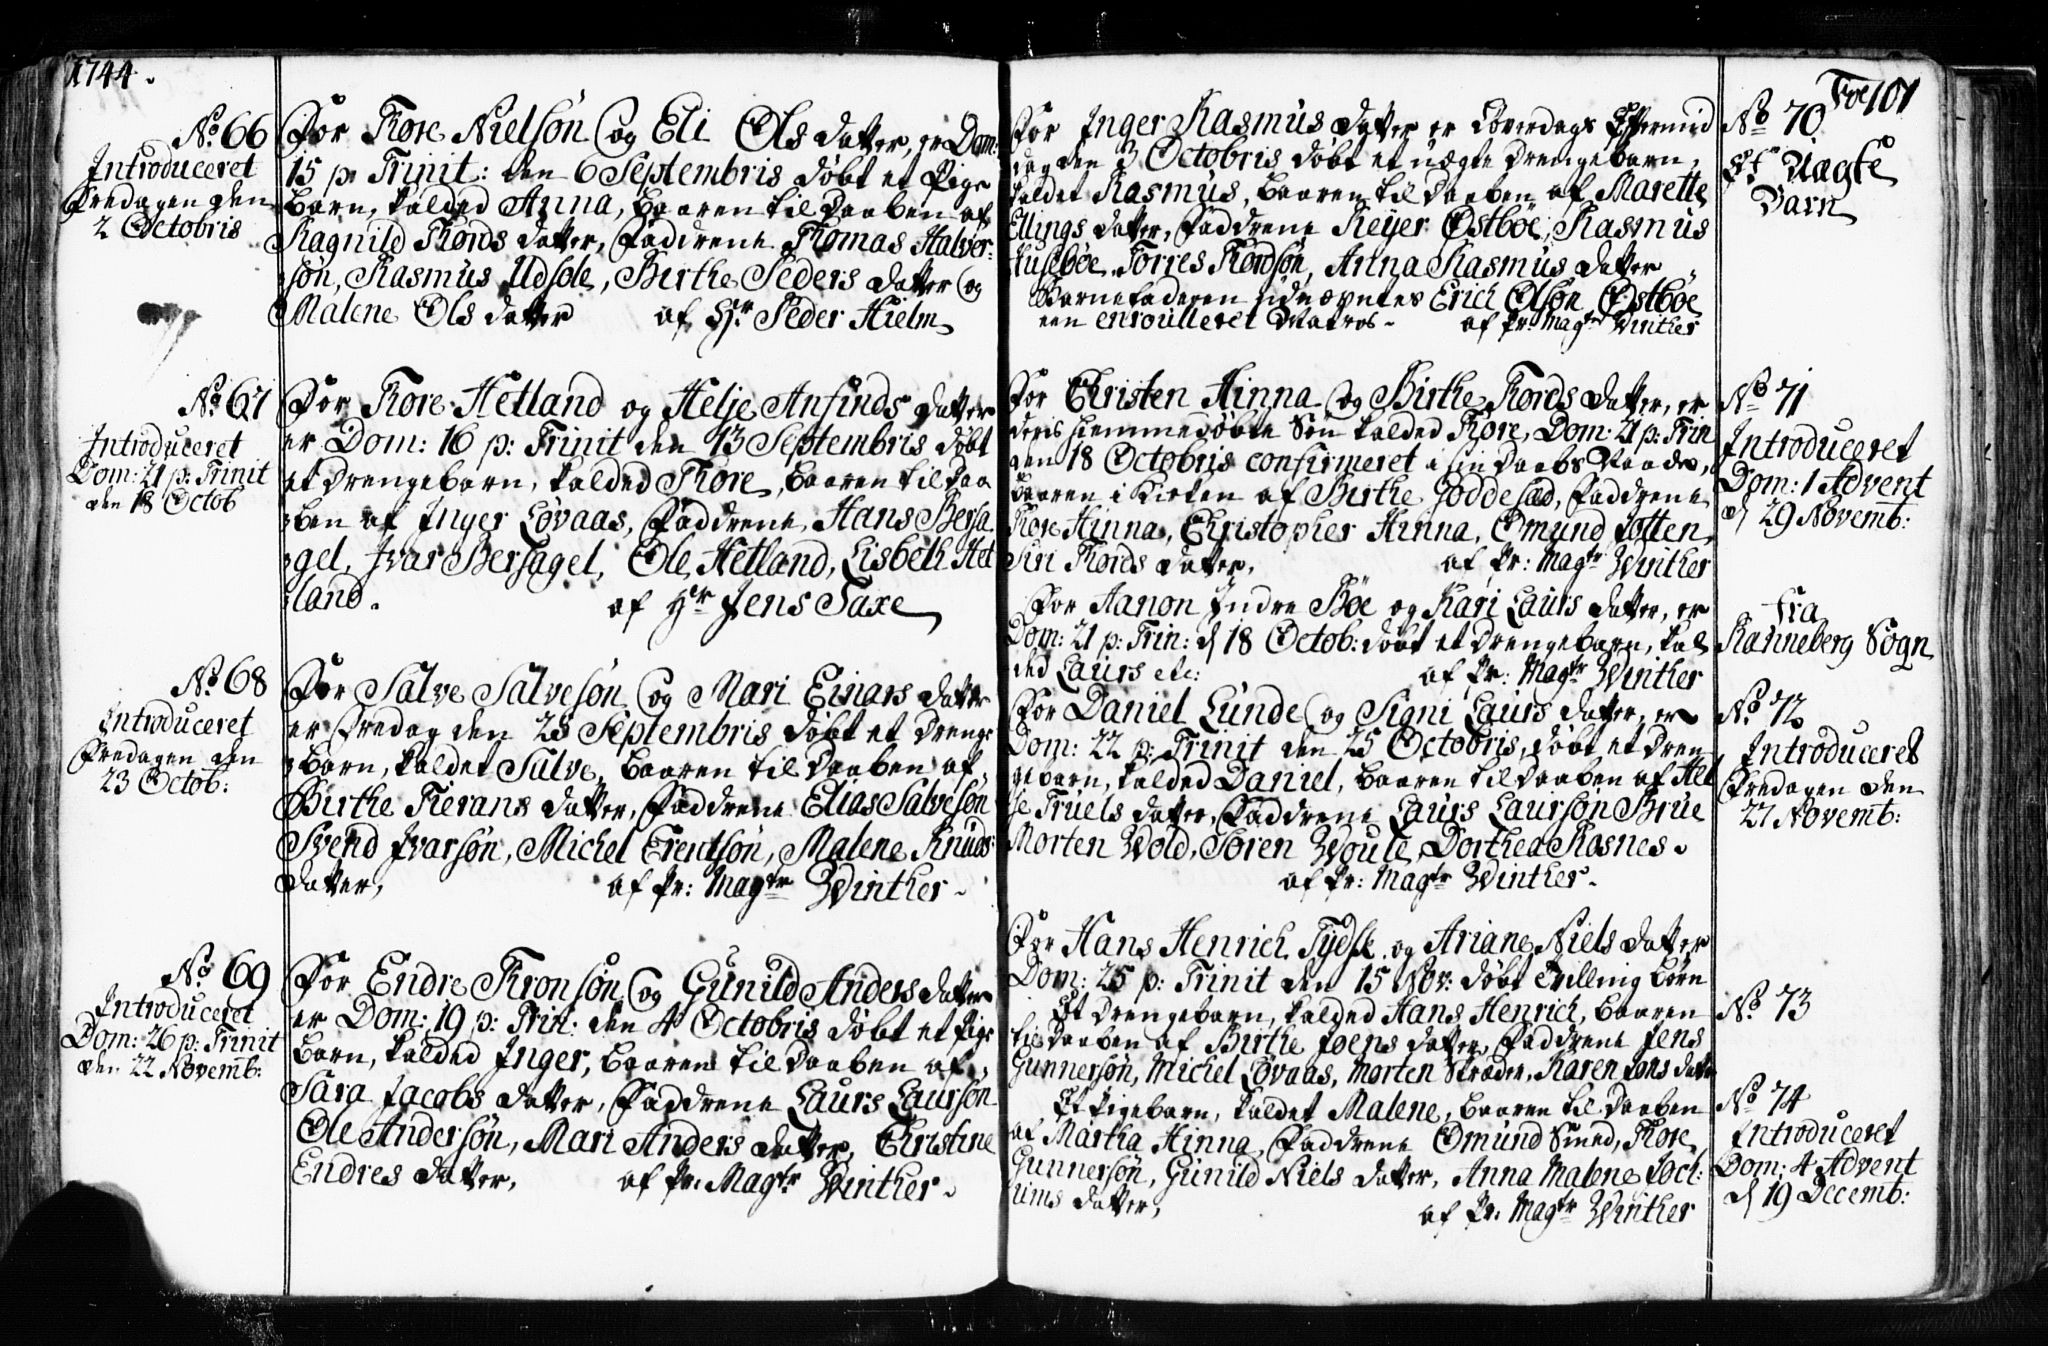 1744.
No 66
Introduceret
Fredagen den
2 Octobris
For Tore Nielsøn og Eli Ols datter, er Dom:
15 p: Trinit: den 6 Septembris døbt et Pige
barn, kalded Anna, baaren til Daaben af
Ragnild Tords datter, Faddrene Thomas Halver-
søn, Rasmus Udsole, Birthe Peders datter og
Malene Ols datter af Hr Peder Hielm
No 67
Introduceret
Dom: 21 p: Trinit
den 18 Octob
For Tore Hetland og Helje Anfinds datter
er Dom: 16 p: Trinit den 13 Septembris døbt
et drengebarn, kalded Tore, baaren til daa
ben af Inger Lovaas, Faddrene, Hans Bersa
gel, Ivar Bersagel, Ole Hetland, Lisbeth Het
land. af Hr Jens Saxe
No 68
Introduceret
Fredagen den
23 Octob:
For Salve Salvesøn og Mari Einars datter
er Fredag den 25 Septembris døbt et drenge
barn, kaldet Salve, baaren til Daaben af
Birthe Tierans datter, Faddrene Elias Salvesøn
Svend Ivarsøn, Michel Erentsøn, Malene Knuds
datter, af Pr: Magtr Winther
No 69
Introduceret
Dom: 26 p: Trinit
den 22 Novemb:
For Endre Tronsøn og Gunild Anders datter
er Dom: 19 p: Trin: den 4 Octobris døbt et Pige
barn, kalded Inger, baaren til daaben af
Sara Jacobs datter, Faddrene Laurs Laursøn
Ole Andersøn, Mari Anders datter, Christine
Endres datter, af Pr: Magtr Winther
101
For Inger Rasmus datter er Løverdags Eftermid
dag den 3 Octobris døbt et uægte drengebarn,
kaldet Rasmus, baaren til Daaben af Marette
Ellings datter, Faddrene Reyer Østbøe, Rasmus
Husebøe, Torres Tordsøn, Anna Rasmus datter
Barnefaderen udnævntes Erich Olsøn Østbøe
een enroulleret Matros. af Pr: Magtr Winther
No 70
Et Uægte
Barn
For Christen Hinna og Birthe Tords datter, er
deris hiemmedøbte Søn kalded Tore, Dom: 21 p: Trin
den 18 Octobris confirmeret i sin Daabs Naade,
baaren i Kirken af Birthe Joddesæd, Faddrene
Tore Hinna, Christopher Hinna, Omund Jotten,
Siri Tords datter, af Pr: Magtr Winther
No 71
Introduceret
Dom: 1 Advent
d 29 Novemb:
For Aanon Indre Bøe og Kari Laurs datter, er
Dom: 21 p: Trin: d 18 Octob: døbt et drengebarn, kal
ded Laurs etc: af Pr: Magtr Winther
fra
Ranneberg Sogn
For Daniel Lunde og Signi Laurs datter, er
Dom: 22 p: Trinit den 25 Octobris, døbt et dren
gebarn, kalded Daniel, baaren til daaben af Hel
je Truels datter, Faddrene Laurs Laursøn Brue
Morten Wold, Soren Woule, Dorthea Rosnes.
af Pr: Magtr Winther
No 72
Introduceret
Fredagen den
27 Novemb:
For Hans Henrich Tydsk og Ariane Niels datter
Dom: 25 p: Trinit den 15 Nov: døbt Tvilling børn
Et drengebarn, kalded Hans Henrich, baaren
til daaben af Birthe Joens datter, Faddrene Jens
Gunnersøn, Michel Lovaas, Morten Skræder, Karen Jons datter
No 73
Et Pigebarn, kaldet Malene, baaren til daaben
af Martha Hinna, Faddrene Omund Smed, Tore
Gunnersøn, Gunild Niels datter, Anna Malene Joch:
ims datter, af Pr: Magtr Winther
No 74
Introduceret
Dom: 4 Advent
d 19 Decemb: